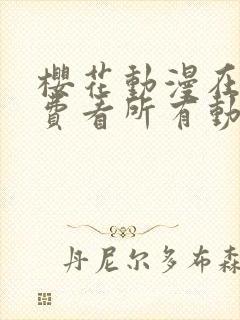 櫻花動漫在
費看所有動
丹尼尔多布森